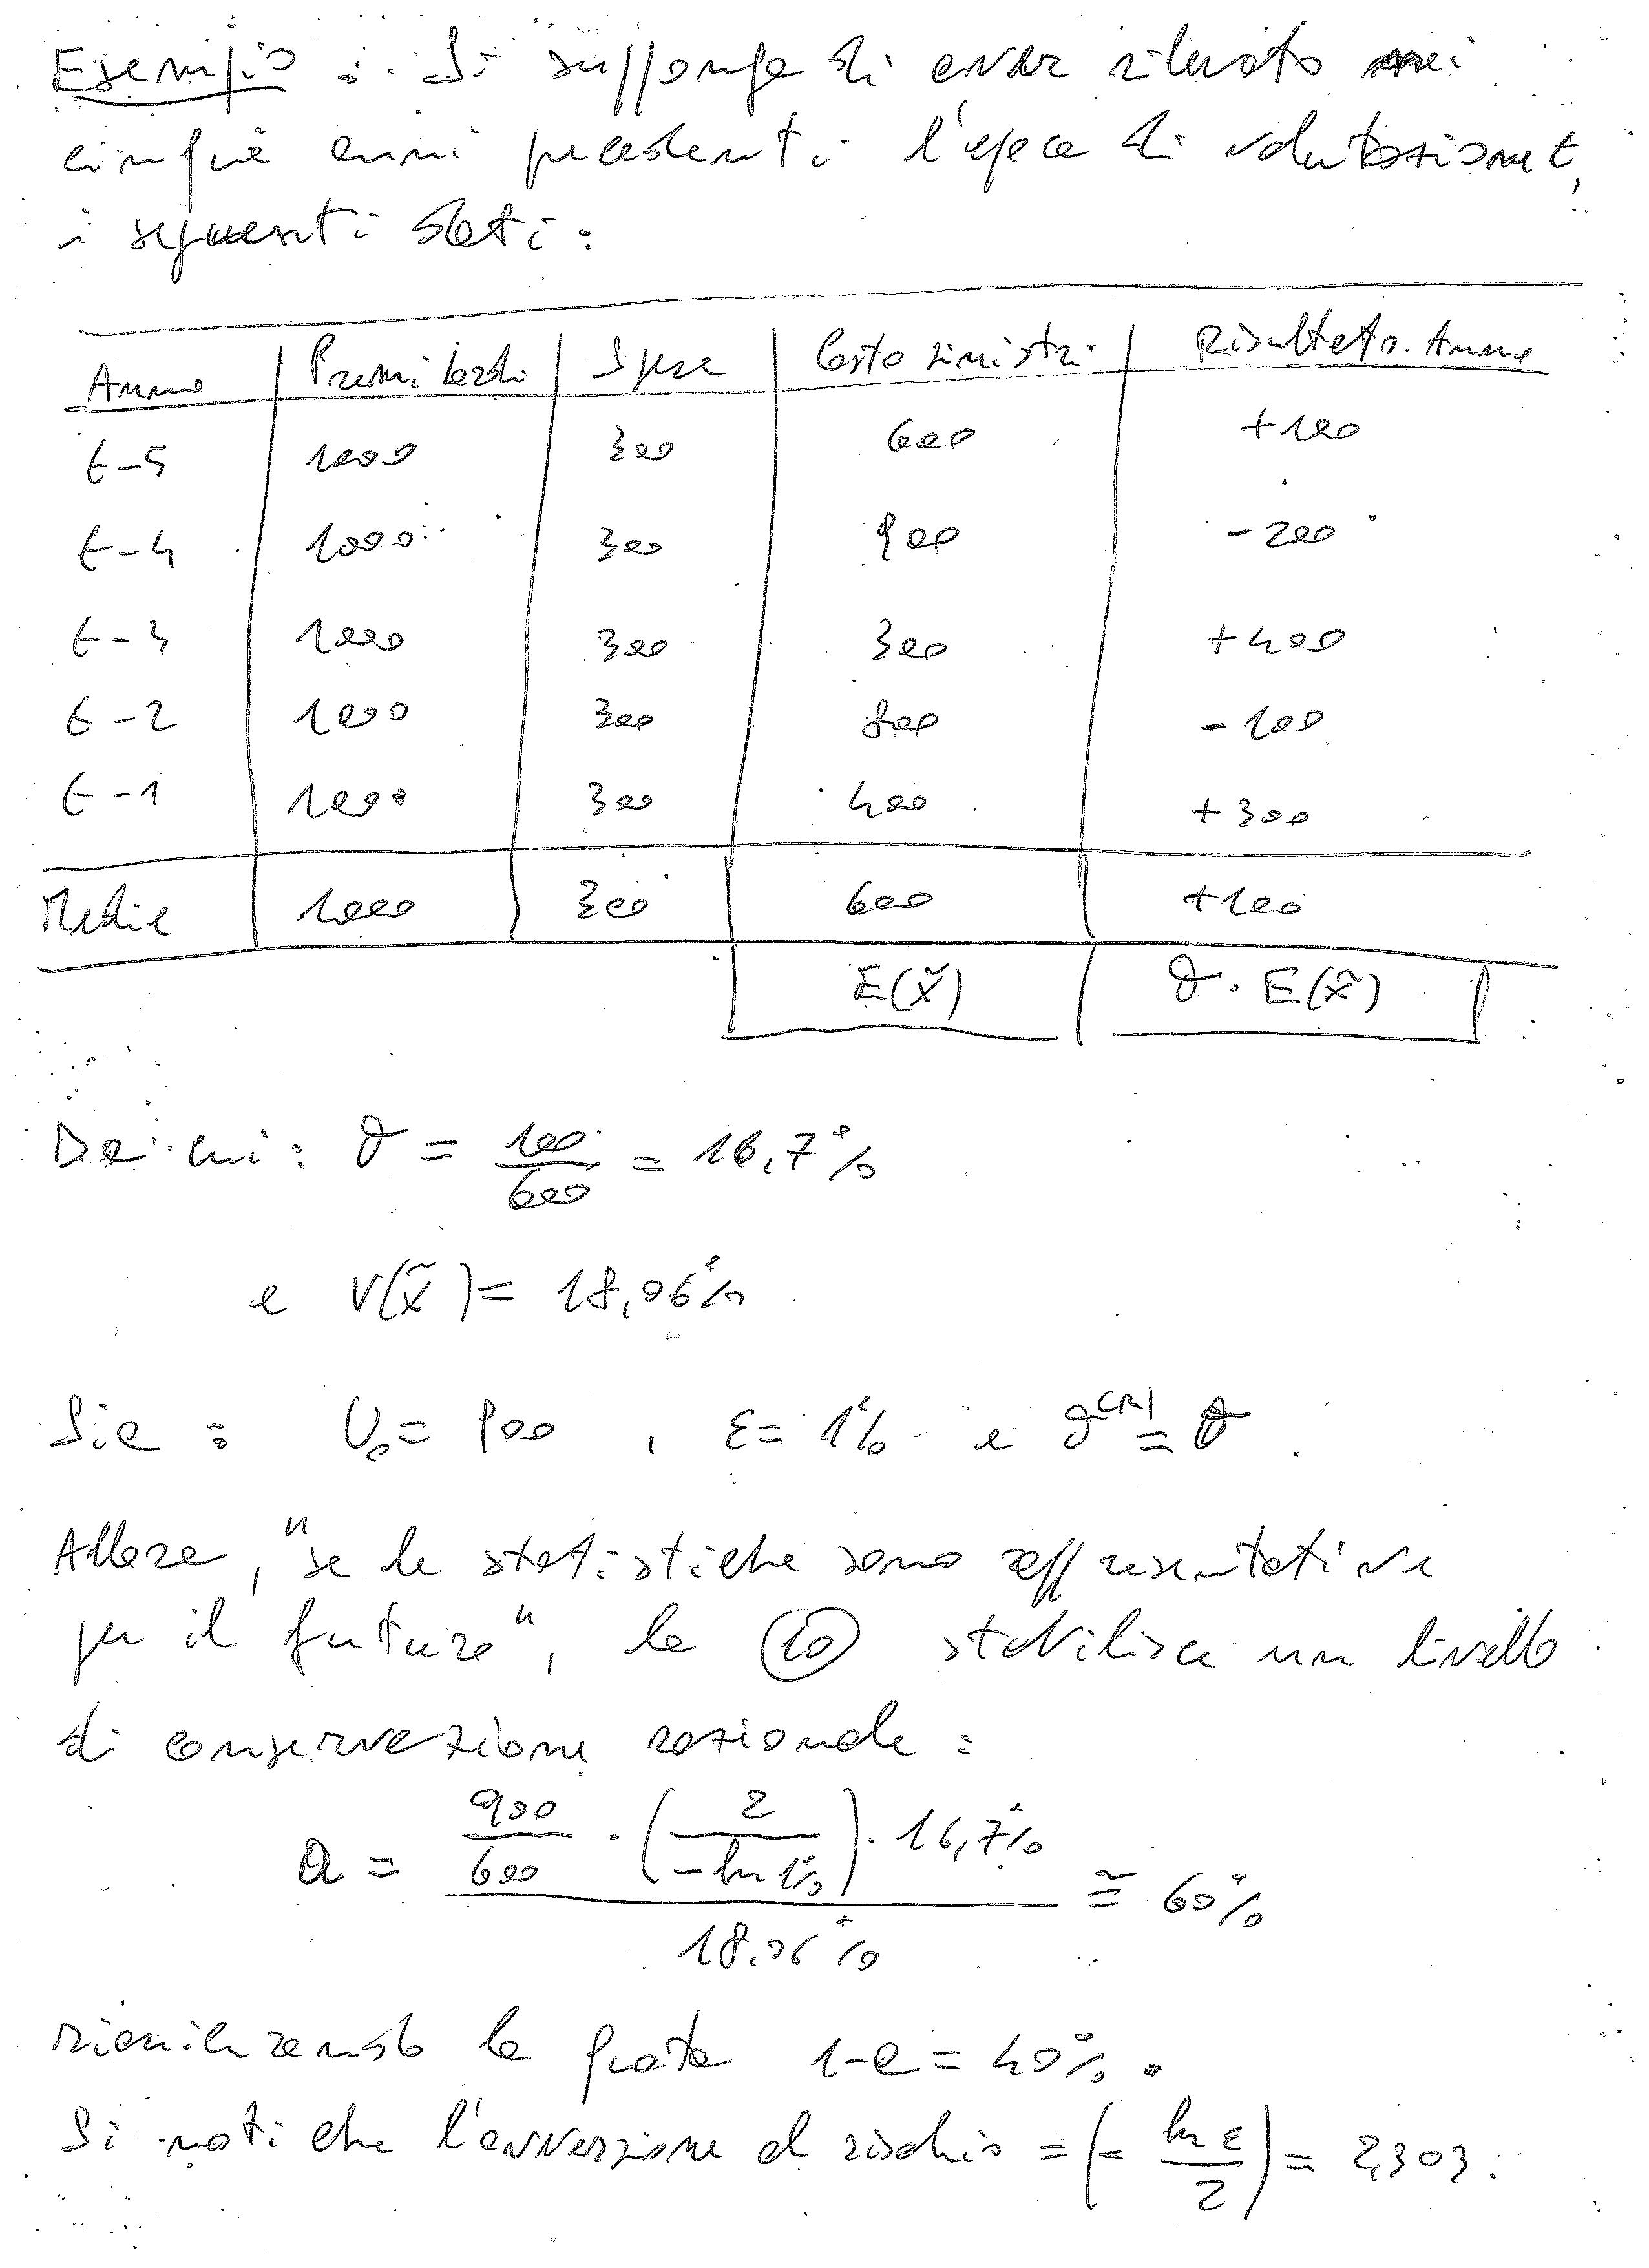 Esempio : Si supponga di aver rilevato nei
cinque anni precedenti l'epoca di valutazione t,
i seguenti dati :
Anno | Premi lordi | Spese | Costo sinistri | Risultato Anno
t-5 | 1000 | 300 | 600 | +100
t-4 | 1000 | 300 | 900 | -200
t-3 | 1000 | 300 | 300 | +400
t-2 | 1000 | 300 | 800 | -100
t-1 | 1000 | 300 | 400 | +300
Medie | 1000 | 300 | 600 | +100
E(x̃) | ϑ · E(x̃)
Da cui : ϑ = 100/600 = 16,7%
e V(x̃) = 18,06%
Sia : U₀ = 900 , ε = 1% e ϑ^(R) = ϑ .
Allora, "se le statistiche sono rappresentative
per il futuro", la (10) stabilisce un livello
di conservazione razionale :
a = (900/600 · (2/(-ln 1%)) · 16,7%) / 18,06% ≅ 60%
riassicurando la quota 1-a = 40% .
Si noti che l'avversione al rischio = (- ln ε/2) = 2,303 .